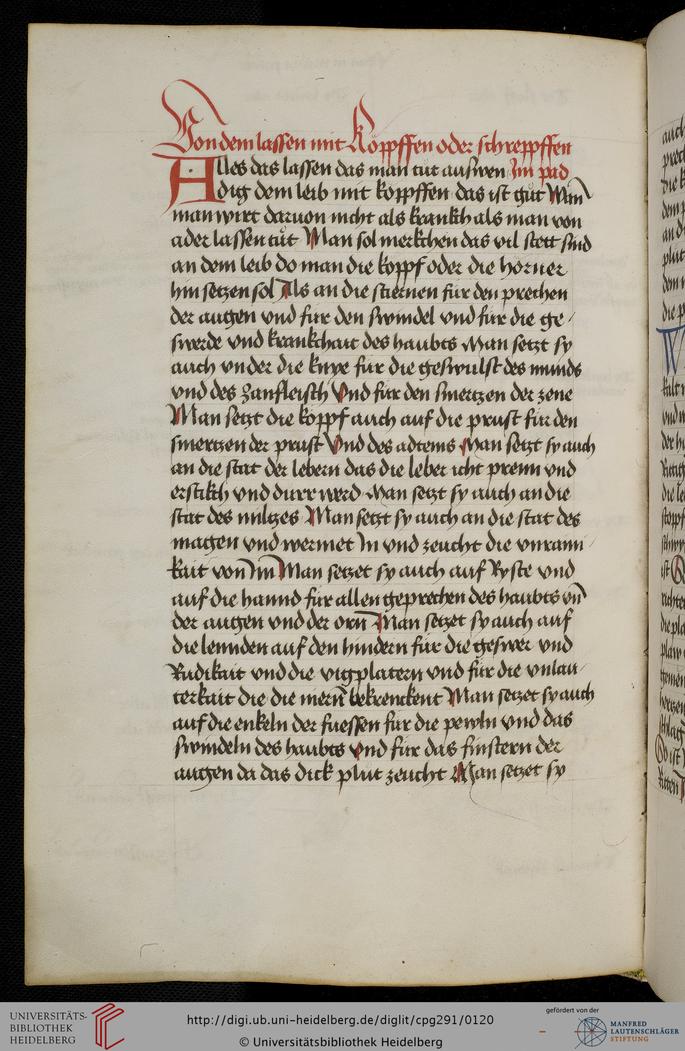 Von dem lassen mit Köpffen oder schreppffen
Alles das lassen das man tůt auswen Im pad
dig dem leib mit koppffen das ist gůt Wan
man wirt daruon nicht als krankh als man von
ader lassen tůt Man sol merkchen das vil stett sind
an dem leib do man die koppf oder die horner
hin setzen sol Als an die stiernen für den prechen
der augen vnd für den swindel vnd für die ge /
swerde vnd krankchait des haubts Man setzt sy
auch vnder die knye für die geswulst des munds
vnd des zanfleisch Vnd für den smertzen der zene
Man setzt die koppf auch auf die prust für den
smertzen der prust Vnd des adtems Man setzt sy auch
an die stat der lebern das die leber icht prenn vnd
erstikch vnd durr werd Man setzt sy auch an die
stat des miltzes Man setzt sy auch an die stat des
magen vnd wermet In vnd zeucht die vnrain /
kait von im Man setzet sy auch auf Ryste vnd
auf die hannd für allen geprechen des haubts vn̄
der augen vnd der orn̄ Man setzet sy auch auf
die lennden auf den hindern für die geswer vnd
Rudikait vnd die vigplatern vnd für die vnlau /
terkait die die niern̄ bekrenckent Man setzet sy auch
auf die enkeln der fuessen für die pewln vnd das
swindeln des haubts vnd für das finstern der
augen da das dick plut zeucht Man setzet sy
UNIVERSITÄTS-
BIBLIOTHEK
HEIDELBERG
http://digi.ub.uni-heidelberg.de/diglit/cpg291/0120
© Universitätsbibliothek Heidelberg
gefördert von der
MANFRED
LAUTENSCHLÄGER
STIFTUNG